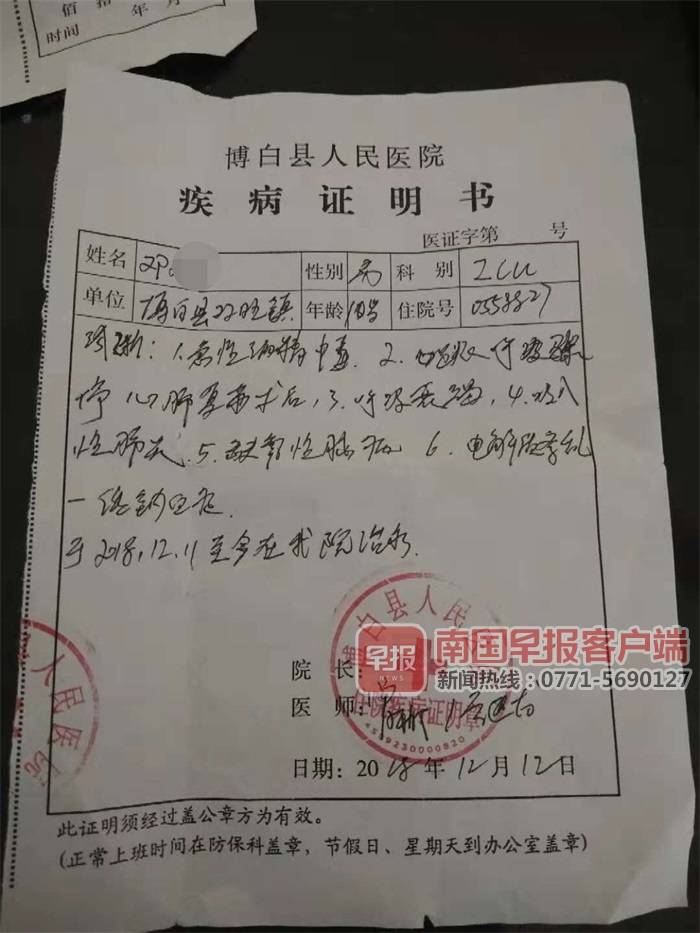 佰拾
年 月
时间
博白县人民医院
疾病证明书
医证字第 号
姓名 邓 性别 男 科别 ICU
单位 博白县双旺镇 年龄 住院号 0558827
诊断：1.急性酒精中毒 2. 心跳 呼吸骤
停 心肺复苏术后，3.呼吸衰竭，4.吸入
性肺炎 5.缺氧性脑病 6.电解质紊乱
一低钠血症
于2018.12.11至今在我院治疗.
博白县人民
院长：
医师：
住院疾病证明章
4509230000820
日期：2018年12月12日
人民医院
早报
南国早报客户端
新闻热线：0771-5690127
此证明须经过盖公章方为有效。
(正常上班时间在防保科盖章，节假日、星期天到办公室盖章)